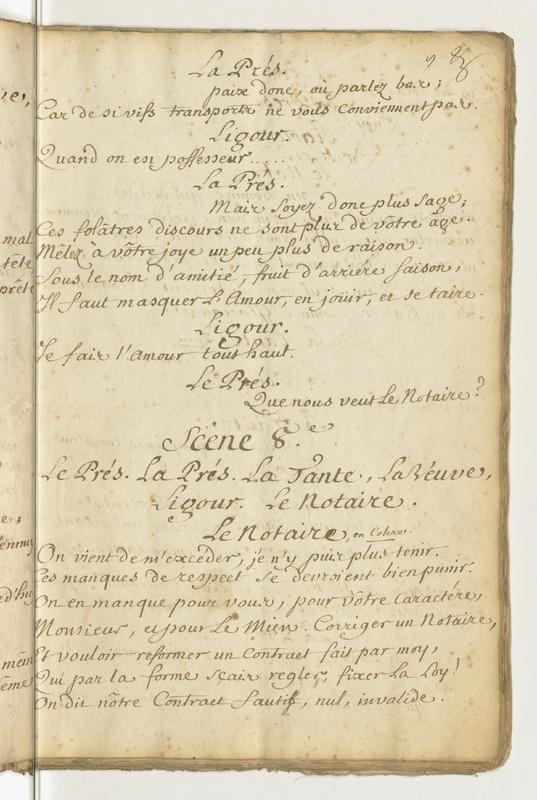 La Prés.
paix donc, ou parlez bas;
Car de si vifs transports ne vous conviennent pas.
Ligour.
Quand on est possesseur.....
La Prés.
Mais soyez donc plus sage;
Ces folâtres discours ne sont plus de vôtre âge.
Mêlez à vôtre joye un peu plus de raison.
Sous le nom d'amitié, fruit d'arriére saison,
Il faut masquer L'Amour, en joüir, et se taire.
Ligour.
Je fais l'amour tout haut.
Le Prés.
Que nous veut Le Notaire?
Scène 8.e
Le Prés. La Prés. La Tante, La Veuve,
Ligour. Le Notaire.
Le Notaire, en Colere.
On vient de m'excéder, je n'y puis plus tenir.
Les manques de respect se devroient bien punir.
On en manque pour vous, pour vôtre caractére,
Monsieur, et pour Le Mien. Corriger un Notaire,
Et vouloir reformer un Contract fait par moy,
Qui par la forme sçais regler, fixer La Loy!
On dit nôtre Contract fautif, nul, invalide.
mal
tête
prête
ennuy
rd'huy
même
ême